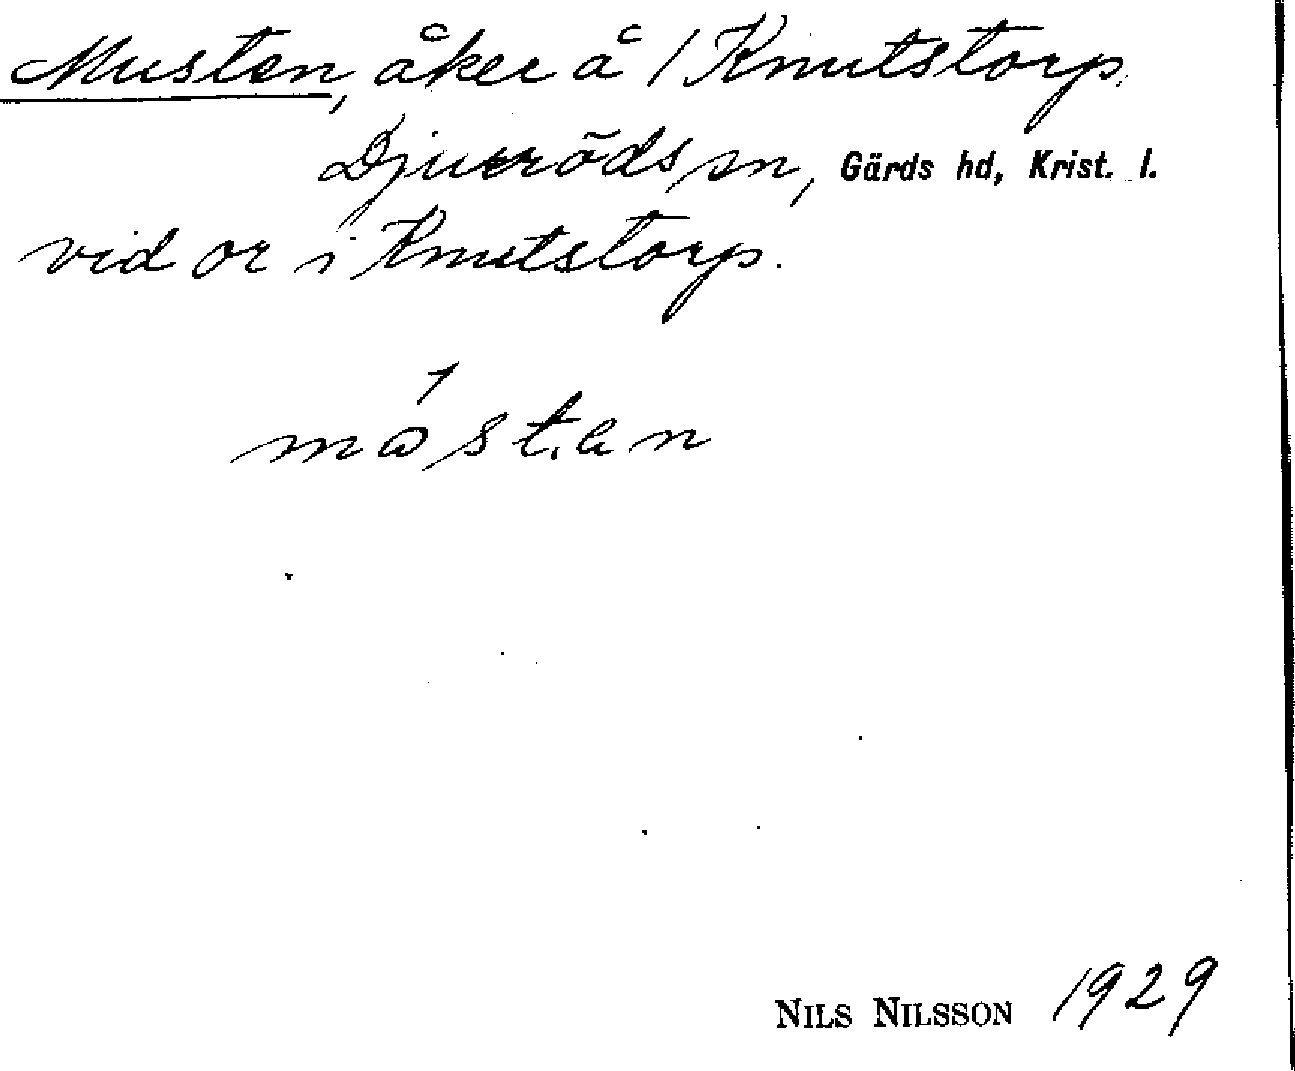 Musten, åker å 1 Knutstorp.
Djurröds sn, Gärds hd, Krist. l.
vid or i Knutstorp.
mástan
NILS NILSSON 1929